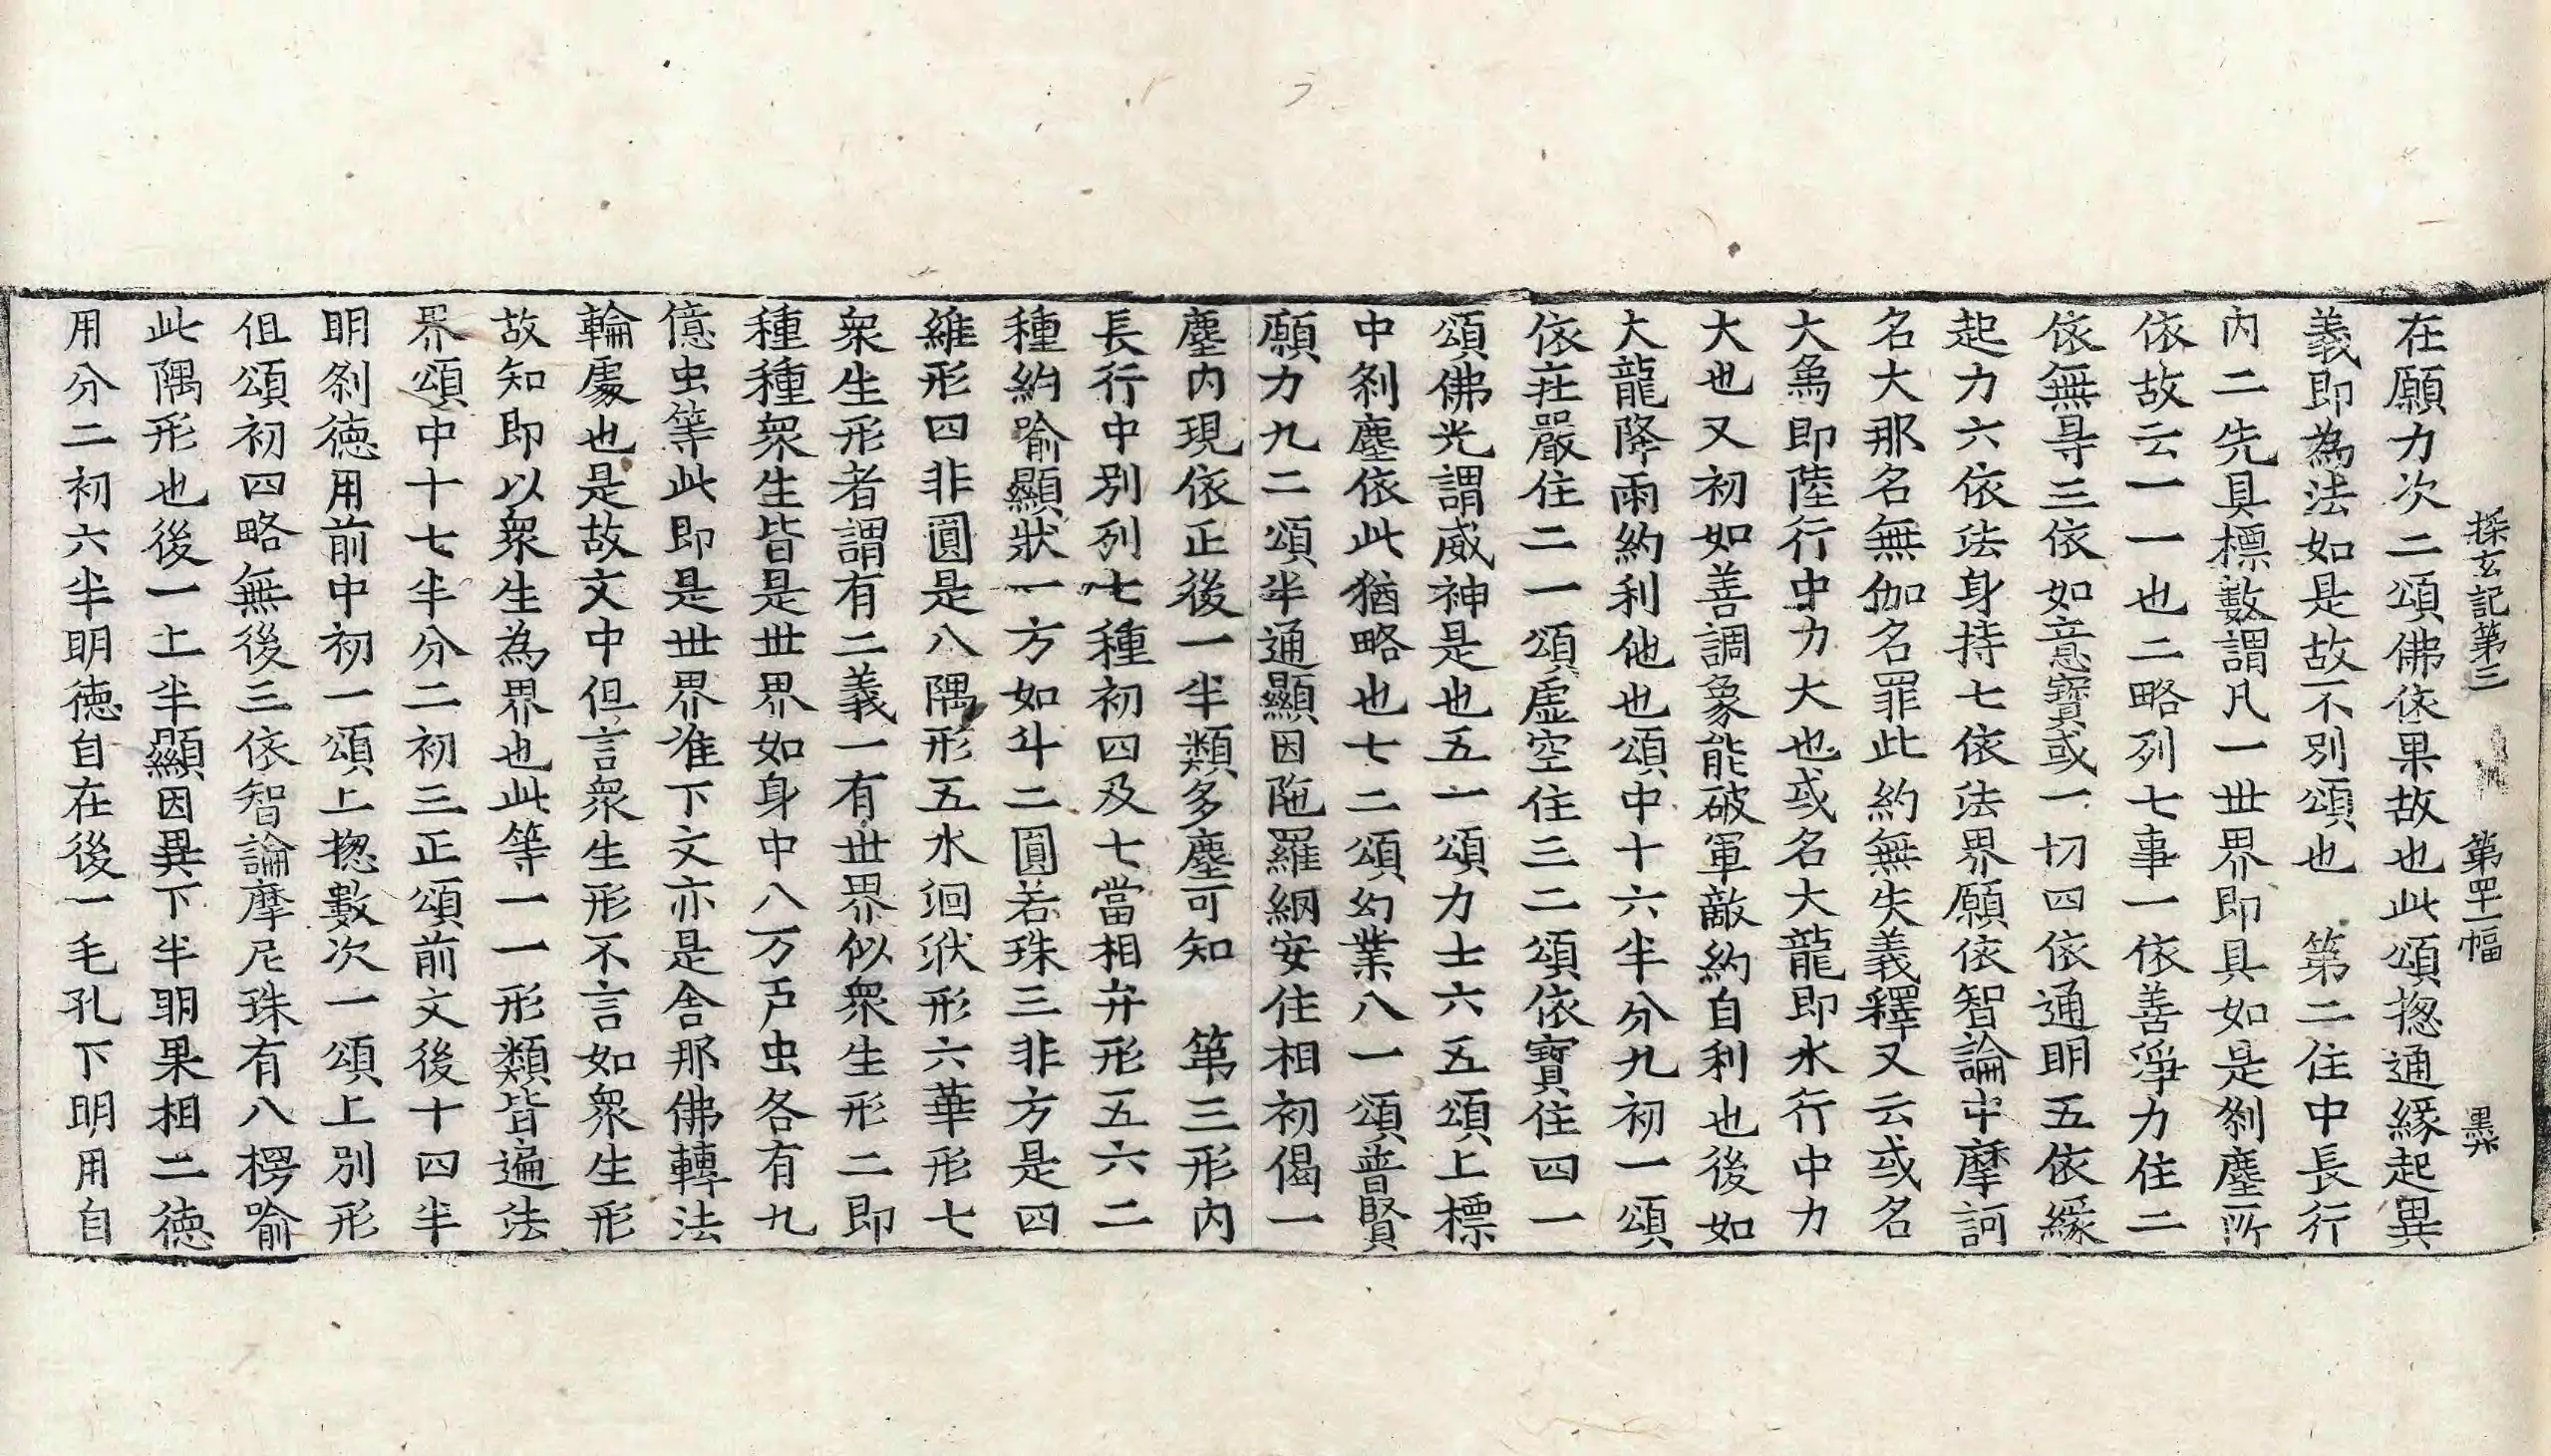 探玄記第三　第罕一幅　墨兴
在願力次二頌佛依果故也此頌揔通緣起異
義即為法如是故不別頌也　第二住中長行
內二先具標數謂凡一世界即具如是刹塵所
依故云一一也二略列七事一依善淨力住二
依無㝵三依如意寶或一切四依通明五依緣
起力六依法身持七依法界願依智論中摩訶
名大那名無伽名罪此約無失義釋又云或名
大象即陸行中力大也或名大龍即水行中力
大也又初如善調象能破軍敵約自利也後如
大龍降雨約利他也頌中十六半分九初一頌
依莊嚴住二一頌虛空住三二頌依寶住四一
頌佛光謂威神是也五一頌力士六五頌上標
中刹塵依此猶略也七二頌幻業八一頌普賢
願力九二頌半通顯因陁羅網安住相初偈一
塵內現依正後一半類多塵可知　第三形內
長行中別列七種初四及七當相弁形五六二
種約喻顯狀一方如斗二圓若珠三非方是四
維形四非圓是八隅形五水洄洑形六華形七
衆生形者謂有二義一有世界似衆生形二即
種種衆生皆是世界如身中八万戶虫各有九
億虫等此即是世界准下文亦是舍那佛轉法
輪處也是故文中但言衆生形不言如衆生形
故知即以衆生為界也此等一一形類皆遍法
界頌中十七半分二初三正頌前文後十四半
明刹德用前中初一頌上揔數次一頌上別形
但頌初四略無後三依智論摩尼珠有八楞喻
此隅形也後一上半顯因異下半明果相二德
用分二初六半明德自在後一毛孔下明用自